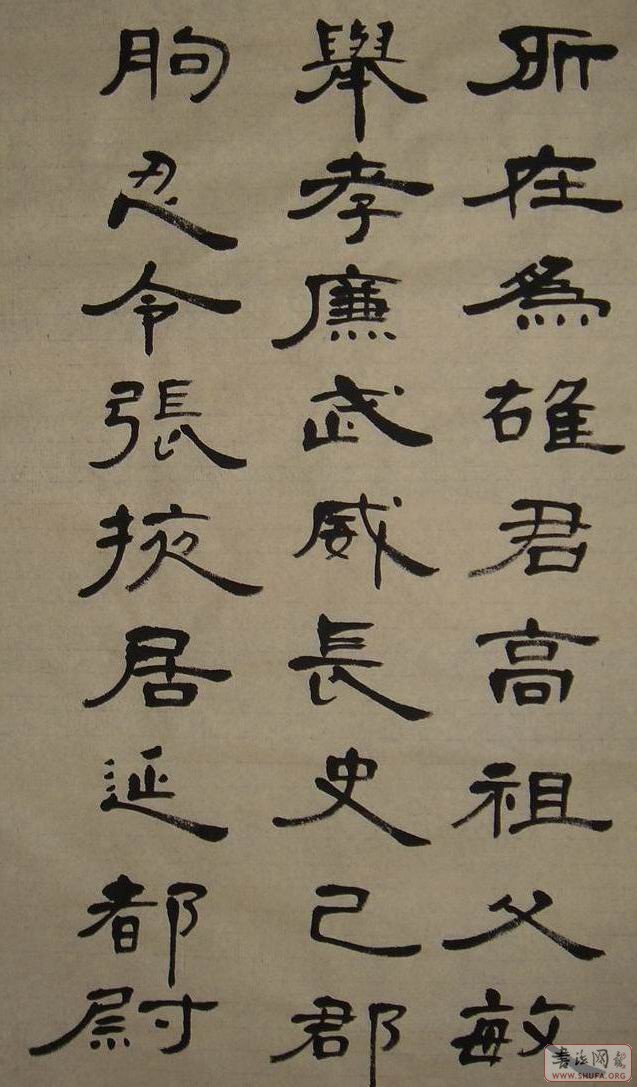 所在為雄君高祖父敏
舉孝廉武威長史己郡
朐忍令張掖居延都尉
WWW.SHUFA.ORG